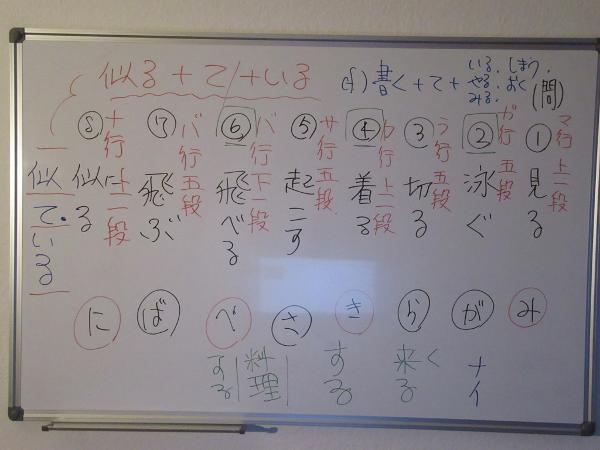 似る+て/+いる
cf)書く+て+いる、しまう、
やる、おく
みる、
(問)
①見る
マ行上一段
②泳ぐ
ガ行五段
③切る
ラ行五段
④着る
カ行上一段
⑤起こす
サ行五段
⑥飛べる
バ行下一段
⑦飛ぶ
バ行五段
⑧似る
ナ行上一段
に
似ている
み
が
ら
き
さ
べ
ば
に
ナイ
来る
く
する
料理
する